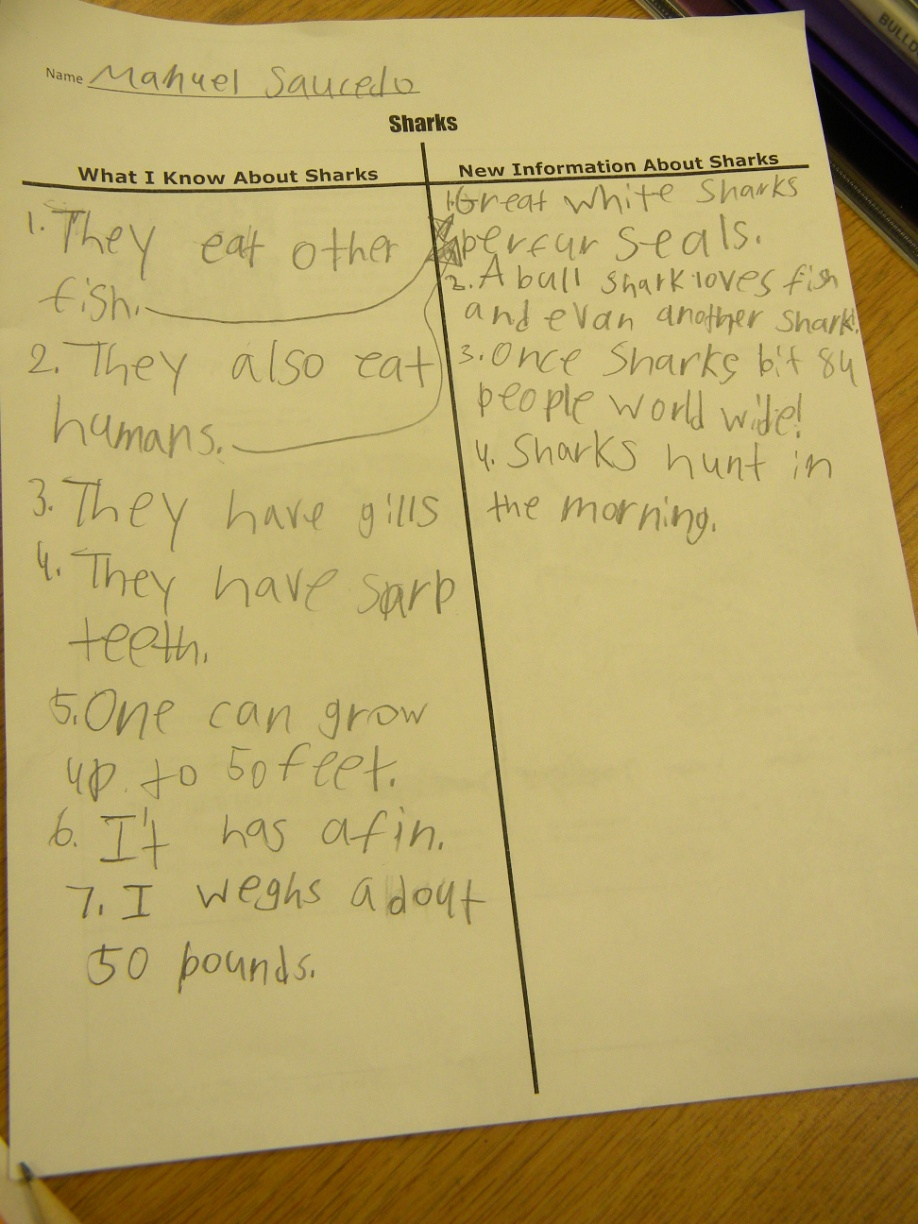 Name Manuel Saucedo
Sharks
What I Know About Sharks
1. They eat other
fish.
2. They also eat
humans.
3. They have gills
4. They have sarp
teeth.
5. One can grow
up to 50 feet.
6. I't has a fin.
7. I weghs adout
50 pounds.
New Information About Sharks
1. Great white sharks
perfur seals.
2. A bull shark loves fish
and evan another shark!
3. Once sharks bit 84
people world wide!
4. Sharks hunt in
the morning.
BULLD